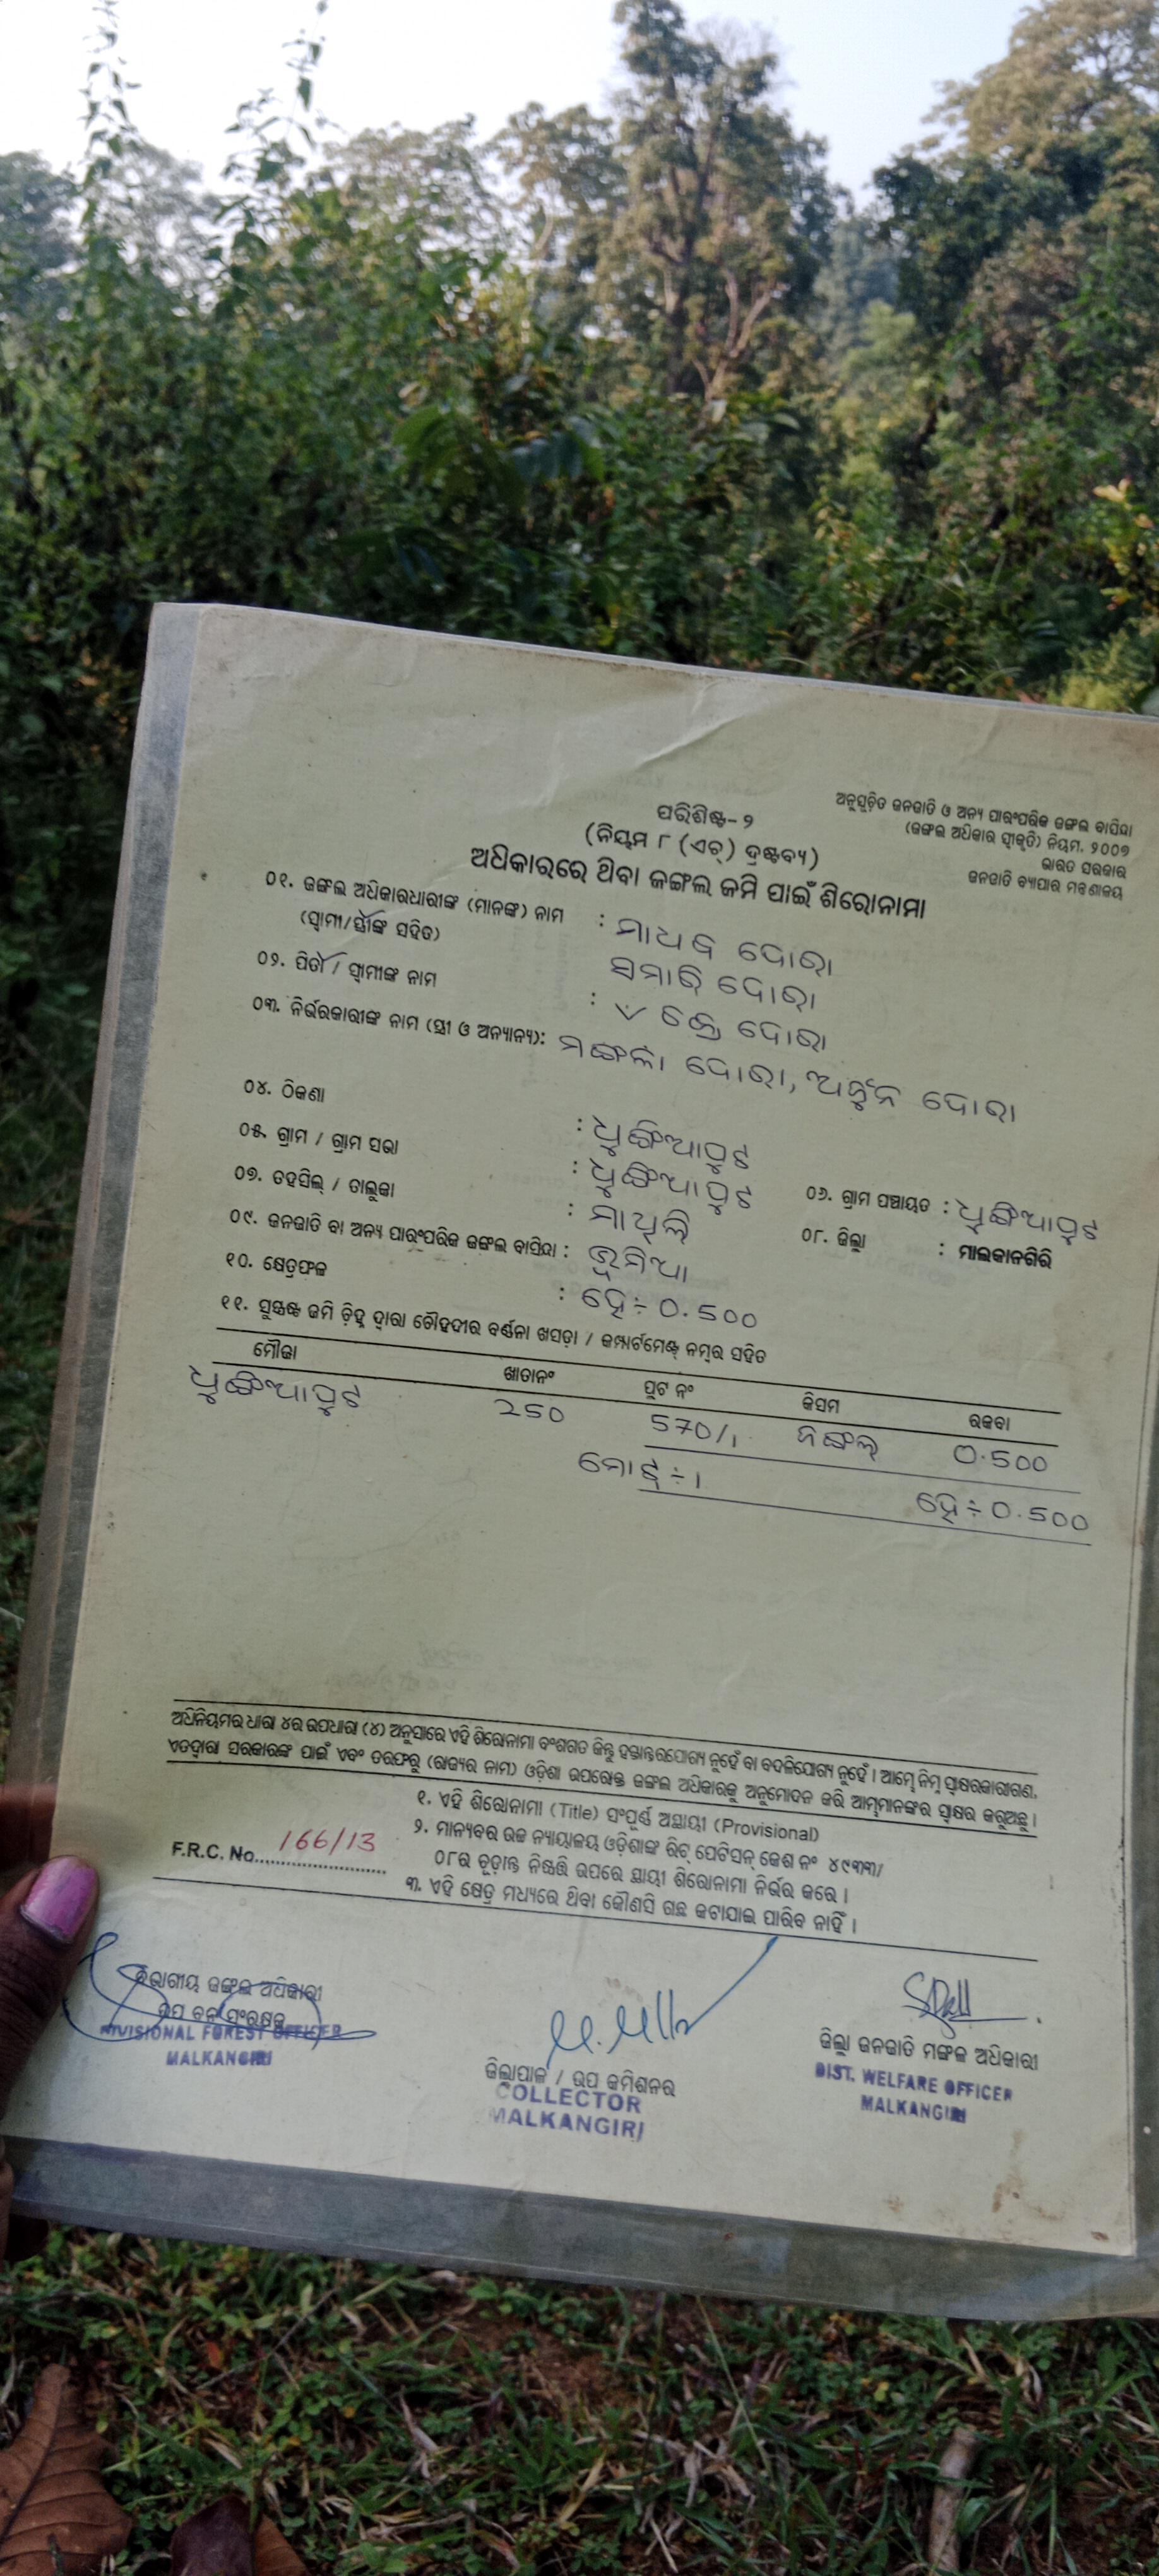 ଅନୁସୂଚିତ ଜନଜାତି ଓ ଅନ୍ୟ ପାରଂପରିକ ଜଙ୍ଗଲ ବାସିନ୍ଦା
(ଜଙ୍ଗଲ ଅଧିକାର ସ୍ୱୀକୃତି) ନିୟମ, ୨୦୦୭
ଭାରତ ସରକାର
ଜନଜାତି ବ୍ୟାପାର ମନ୍ତ୍ରଣାଳୟ
ପରିଶିଷ୍ଟ-୨
(ନିୟମ ୮ (ଏଚ୍) ଦ୍ରଷ୍ଟବ୍ୟ)
ଅଧିକାରରେ ଥିବା ଜଙ୍ଗଲ ଜମି ପାଇଁ ଶିରୋନାମା
୦୧. ଜଙ୍ଗଲ ଅଧିକାରଧାରୀଙ୍କ (ମାନଙ୍କ) ନାମ : ମାଧବ ଦୋରା
(ସ୍ୱାମୀ/ସ୍ତ୍ରୀଙ୍କ ସହିତ) ସମାରି ଦୋରା
୦୨. ପିତା / ସ୍ୱାମୀଙ୍କ ନାମ : ଦୋରା
୦୩. ନିର୍ଭରକାରୀଙ୍କ ନାମ (ସ୍ତ୍ରୀ ଓ ଅନ୍ୟାନ୍ୟ): ମଙ୍ଗଳା ଦୋରା, ଅର୍ଜୁନ ଦୋରା
୦୪. ଠିକଣା : ଧୁଙ୍ଗିଆପୁଟ
୦୫. ଗ୍ରାମ / ଗ୍ରାମ ସଭା : ଧୁଙ୍ଗିଆପୁଟ ୦୬. ଗ୍ରାମ ପଞ୍ଚାୟତ : ଧୁଙ୍ଗିଆପୁଟ
୦୭. ତହସିଲ୍ / ତାଲୁକା : ମାଥିଲି ୦୮. ଜିଲ୍ଲା : ମାଲକାନଗିରି
୦୯. ଜନଜାତି ବା ଅନ୍ୟ ପାରଂପରିକ ଜଙ୍ଗଲ ବାସିନ୍ଦା : ଭୂମିଆ
୧୦. କ୍ଷେତ୍ରଫଳ : ହେ÷ 0.500
୧୧. ସୁସ୍ପଷ୍ଟ ଜମି ଚିହ୍ନ ଦ୍ୱାରା ଚୌହଦୀର ବର୍ଣନା ଖସଡ଼ା / କମ୍ପାର୍ଟମେଣ୍ଟ୍ ନମ୍ବର ସହିତ
ମୌଜା ଖାତାନଂ ପ୍ଲଟ ନଂ କିସମ ରକବା
ଧୁଙ୍ଗିଆପୁଟ 250 570/1 ଜଙ୍ଗଲ୍ 0.500
ମୋଟ୍ ÷ 1 ହେ÷ 0.500
ଅଧିନିୟମର ଧାରା ୪ର ଉପଧାରା (୪) ଅନୁସାରେ ଏହି ଶିରୋନାମା ବଂଶଗତ କିନ୍ତୁ ହସ୍ତାନ୍ତରଯୋଗ୍ୟ ନୁହେଁ ବା ବଦଳିଯୋଗ୍ୟ ନୁହେଁ । ଆମ୍ଭେ ନିମ୍ନ ସ୍ୱାକ୍ଷରକାରୀଗଣ,
ଏତଦ୍ୱାରା ସରକାରଙ୍କ ପାଇଁ ଏବଂ ତରଫରୁ (ରାଜ୍ୟର ନାମ) ଓଡ଼ିଶା ଉପରୋକ୍ତ ଜଙ୍ଗଲ ଅଧିକାରକୁ ଅନୁମୋଦନ କରି ଆମ୍ଭମାନଙ୍କର ସ୍ୱାକ୍ଷର କରୁଅଛୁ ।
୧. ଏହି ଶିରୋନାମା (Title) ସଂପୂର୍ଣ୍ଣ ଅସ୍ଥାୟୀ (Provisional)
୨. ମାନ୍ୟବର ଉଚ୍ଚ ନ୍ୟାୟାଳୟ ଓଡ଼ିଶାଙ୍କ ରିଟ୍ ପେଟିସନ୍ କେଶ ନଂ ୪୯୩୩/
୦୮ର ଚୂଡ଼ାନ୍ତ ନିଷ୍ପତ୍ତି ଉପରେ ସ୍ଥାୟୀ ଶିରୋନାମା ନିର୍ଭର କରେ ।
୩. ଏହି କ୍ଷେତ୍ର ମଧ୍ୟରେ ଥିବା କୌଣସି ଗଛ କଟାଯାଇ ପାରିବ ନାହିଁ ।
F.R.C. No. 166/13
ବିଭାଗୀୟ ଜଙ୍ଗଲ ଅଧିକାରୀ
ଉପ ବନ ସଂରକ୍ଷକ
DIVISIONAL FOREST OFFICER
MALKANGIRI
ଜିଲ୍ଲାପାଳ / ଉପ କମିଶନର
COLLECTOR
MALKANGIRI
ଜିଲ୍ଲା ଜନଜାତି ମଙ୍ଗଳ ଅଧିକାରୀ
DIST. WELFARE OFFICER
MALKANGIRI